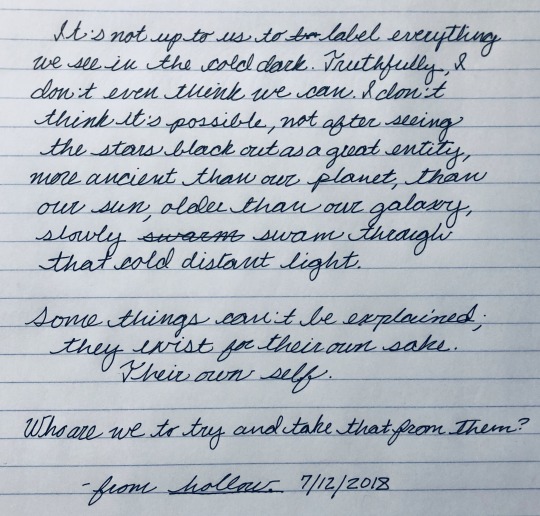 It's not up to us to be label everything
we see in the cold dark. Truthfully, I
don't even think we can. I don't
think it's possible, not after seeing
the stars black out as a great entity,
more ancient than our planet, than
our sun, older than our galaxy,
slowly swarm swam through
that cold distant light.
Some things can't be explained;
they exist for their own sake.
Their own self.
Who are we to try and take that from them?
-from hollow. 7/12/2018